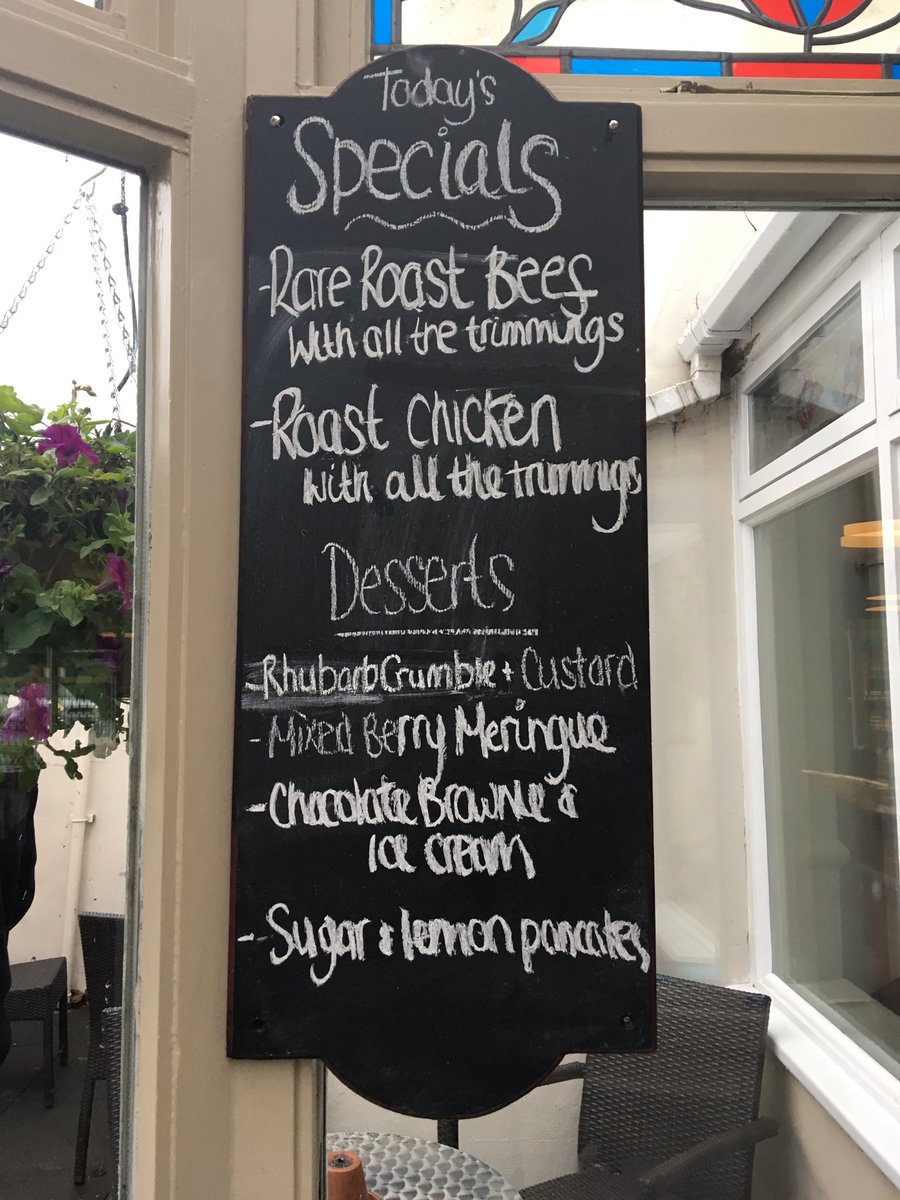 Today's
Specials
-Rare Roast Beef
With all the trimmings
-Roast Chicken
With all the trimmigs
Desserts
-Rhubarb Crumble + Custard
-Mixed Berry Meringue
-Chocolate Brownie &
Ice cream
-Sugar & lemon pancakes